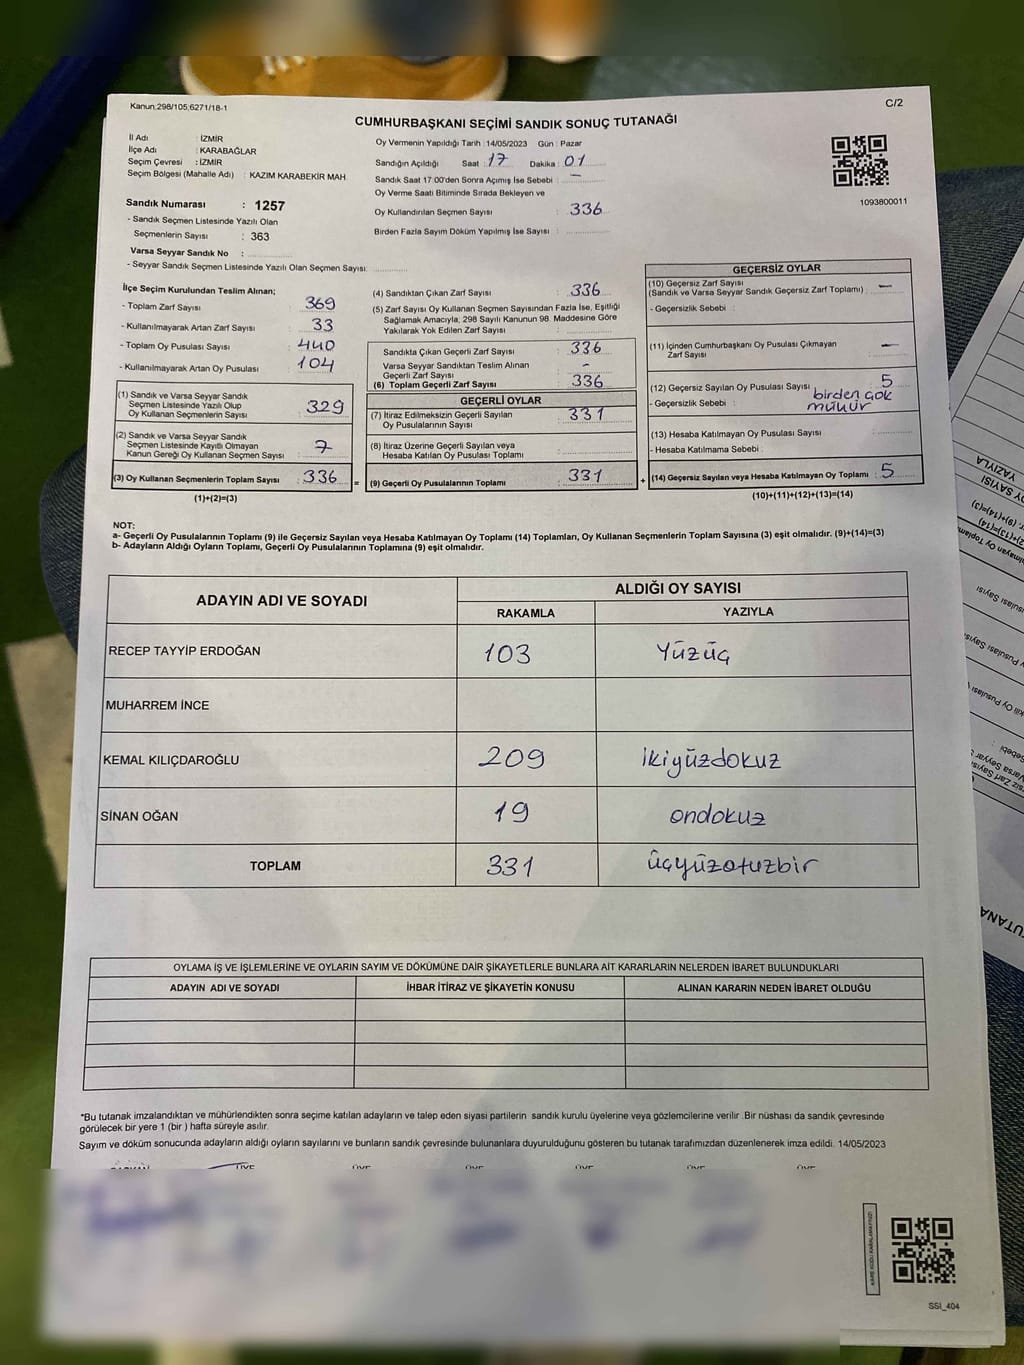 Kanun:298/105,6271/18-1
C/2
CUMHURBAŞKANI SEÇİMİ SANDIK SONUÇ TUTANAĞI
İl Adı : İZMİR
İlçe Adı : KARABAĞLAR
Seçim Çevresi : İZMİR
Seçim Bölgesi (Mahalle Adı) : KAZIM KARABEKİR MAH.
Sandık Numarası : 1257
- Sandık Seçmen Listesinde Yazılı Olan
Seçmenlerin Sayısı : 363
Varsa Seyyar Sandık No :
- Seyyar Sandık Seçmen Listesinde Yazılı Olan Seçmen Sayısı:
Oy Vermenin Yapıldığı Tarih :14/05/2023 Gün : Pazar
Sandığın Açıldığı Saat : 17 Dakika : 01
Sandık Saat 17:00'den Sonra Açımış İse Sebebi : -
Oy Verme Saati Bitiminde Sırada Bekleyen ve
Oy Kullandırılan Seçmen Sayısı : 336
Birden Fazla Sayım Döküm Yapılmış İse Sayısı :
1093800011
İlçe Seçim Kurulundan Teslim Alınan;
- Toplam Zarf Sayısı : 369
- Kullanılmayarak Artan Zarf Sayısı : 33
- Toplam Oy Pusulası Sayısı : 440
- Kullanılmayarak Artan Oy Pusulası : 104
(1) Sandık ve Varsa Seyyar Sandık
Seçmen Listesinde Yazılı Olup
Oy Kullanan Seçmenlerin Sayısı : 329
(2) Sandık ve Varsa Seyyar Sandık
Seçmen Listesinde Kayıtlı Olmayan
Kanun Gereği Oy Kullanan Seçmen Sayısı : 7
(3) Oy Kullanan Seçmenlerin Toplam Sayısı : 336
(1)+(2)=(3)
=
(4) Sandıktan Çıkan Zarf Sayısı : 336
(5) Zarf Sayısı Oy Kullanan Seçmen Sayısından Fazla İse, Eşitliği
Sağlamak Amacıyla; 298 Sayılı Kanunun 98. Maddesine Göre
Yakılarak Yok Edilen Zarf Sayısı :
Sandıkta Çıkan Geçerli Zarf Sayısı : 336
Varsa Seyyar Sandıktan Teslim Alınan
Geçerli Zarf Sayısı : -
(6) Toplam Geçerli Zarf Sayısı : 336
GEÇERLİ OYLAR
(7) İtiraz Edilmeksizin Geçerli Sayılan
Oy Pusulalarının Sayısı : 331
(8) İtiraz Üzerine Geçerli Sayılan veya
Hesaba Katılan Oy Pusulası Toplamı :
(9) Geçerli Oy Pusulalarının Toplamı : 331
+
GEÇERSİZ OYLAR
(10) Geçersiz Zarf Sayısı
(Sandık ve Varsa Seyyar Sandık Geçersiz Zarf Toplamı) : -
- Geçersizlik Sebebi :
(11) İçinden Cumhurbaşkanı Oy Pusulası Çıkmayan
Zarf Sayısı : -
(12) Geçersiz Sayılan Oy Pusulası Sayısı : 5
- Geçersizlik Sebebi : birden çok
mühür
(13) Hesaba Katılmayan Oy Pusulası Sayısı :
- Hesaba Katılmama Sebebi :
(14) Geçersiz Sayılan veya Hesaba Katılmayan Oy Toplamı : 5
(10)+(11)+(12)+(13)=(14)
NOT:
a- Geçerli Oy Pusulalarının Toplamı (9) ile Geçersiz Sayılan veya Hesaba Katılmayan Oy Toplamı (14) Toplamları, Oy Kullanan Seçmenlerin Toplam Sayısına (3) eşit olmalıdır. (9)+(14)=(3)
b- Adayların Aldığı Oyların Toplamı, Geçerli Oy Pusulalarının Toplamına (9) eşit olmalıdır.
ADAYIN ADI VE SOYADI
ALDIĞI OY SAYISI
RAKAMLA YAZIYLA
RECEP TAYYİP ERDOĞAN 103 Yüzüç
MUHARREM İNCE
KEMAL KILIÇDAROĞLU 209 ikiyüzdokuz
SİNAN OĞAN 19 ondokuz
TOPLAM 331 üçyüzotuzbir
OYLAMA İŞ VE İŞLEMLERİNE VE OYLARIN SAYIM VE DÖKÜMÜNE DAİR ŞİKAYETLERLE BUNLARA AİT KARARLARIN NELERDEN İBARET BULUNDUKLARI
ADAYIN ADI VE SOYADI İHBAR İTİRAZ VE ŞİKAYETİN KONUSU ALINAN KARARIN NEDEN İBARET OLDUĞU
*Bu tutanak imzalandıktan ve mühürlendikten sonra seçime katılan adayların ve talep eden siyasi partilerin sandık kurulu üyelerine veya gözlemcilerine verilir .Bir nüshası da sandık çevresinde
görülecek bir yere 1 (bir ) hafta süreyle asılır.
Sayım ve döküm sonucunda adayların aldığı oyların sayılarını ve bunların sandık çevresinde bulunanlara duyurulduğunu gösteren bu tutanak tarafımızdan düzenlenerek imza edildi. 14/05/2023
SSI_404